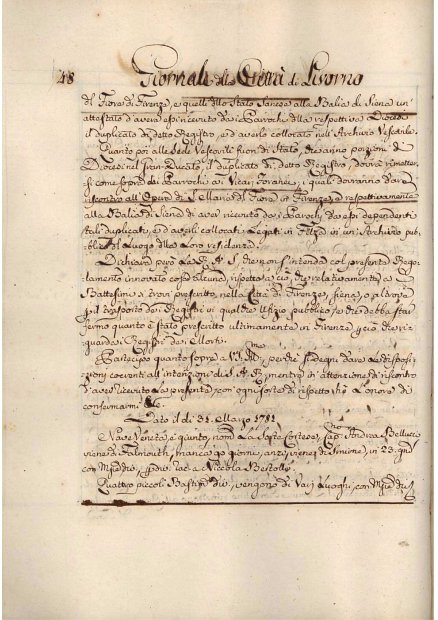 48 Giornale della Città di Livorno
del Fiore di Firenze, e quelli dello Stato Sanese alla Balìa di Siena un'
attestato d'avere essi ricevuto dai Parrochi della respettiva Diocesi
il duplicato di detto Registro, e d'averlo collocato nell'Archivio Vescovile.
Quanto poi alle Sedi Vescovili fuori di Stato, che anno porzioni di
Diocesi nel Gran Ducato, il duplicato di detto Registro, dovrà rimetter-
si come sopra dai Parrochi ai Vicari Foranei, i quali dovranno dare
riscontro all'Opera di S. Maria del Fiore in Firenze, e respettivamente
alla Balìa di Siena di aver ricevuto dai Parochi da essi dependenti
tali duplicati, e d'averli collocati Legati in Filza in un'Archivio pub-
blico del Luogo della Loro residenza.
Dichiara però La R. A. S. che non s'intenda col presente Rego-
lamento innovato cosa alcuna, rispetto a ciò, che relativamente a
Battesimi si trovi prescritto, nella Città di Firenze, Siena, o altrove
p. il trasporto dei Registri in qualche Ufizio pubblico, e che debba star
fermo quanto è stato prescritto ultimamente in Firenze p. ciò che ri-
guarda i Registri dei Morti.
Partecipo quanto sopra a V. S. Ill.ma perchè si degni dare le disposi-
zioni coerenti all'intenzioni di S. A. R. mentre in attenzione di riscontro
d'aver ricevuto La presente, con ogni sorte di rispetto ho L'onore di
confermarmi &c.
Dato il dì 31. Marzo 1781
Nave Veneta, è giunto, nom. La Sorte Cortese, Cap.no Andrea Bellucci
viene di Falmouth, manca 90 giorni, anzi, viene di in 23. gni
con Mercanzie, Racc. a Niccola Bertolli
Quattro piccoli Bastimenti, vengono da Varj Luoghi, con